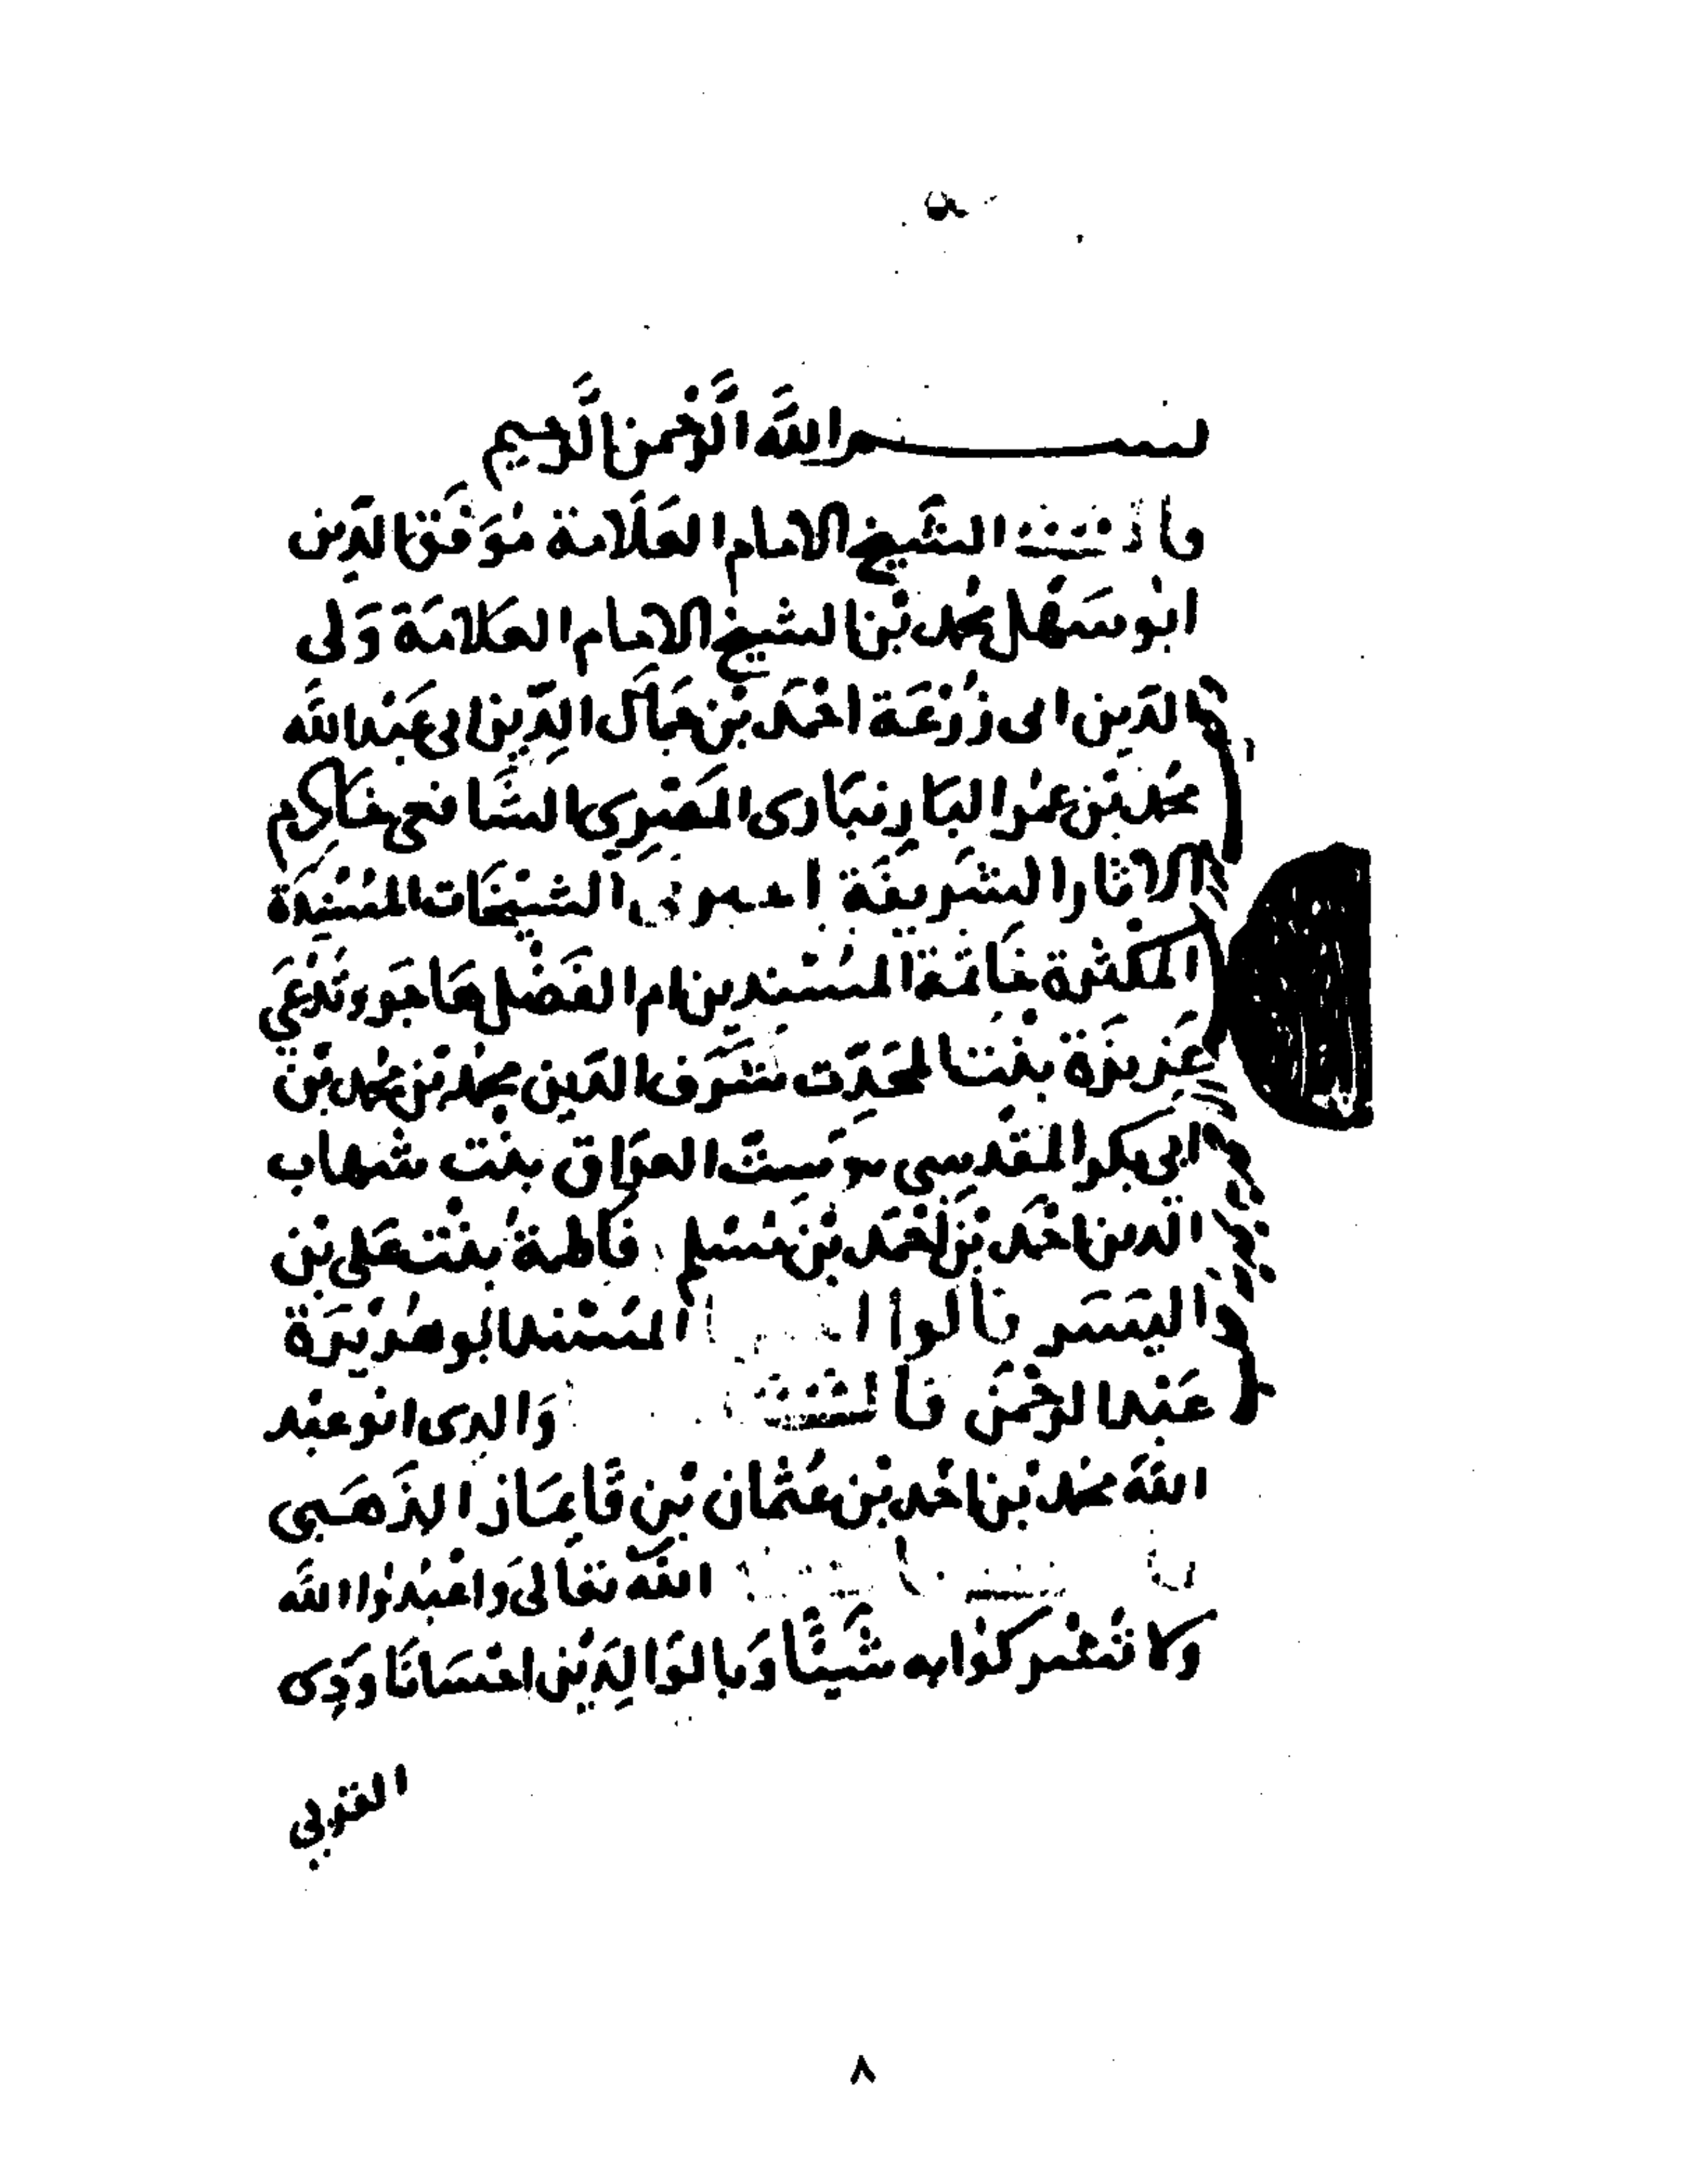 بسم الله الرَّحمن الرَّحيم
الشيخ الامام العَلَّامة مُوَفق الدِّين
ابو سَهْل محمد بْن الشيخ الامام العلامَة وَلى
الدّين ابى زُرْعَة احْمَد بْن جمَال الدِّين ابى عَبْد الله
محمد بْن عُمَر البَارنبَارى المصْرِى الشَّافعى حَاكم
الاثار الشَرِيفَة الشيْخَات المُسْنِدَة
المكثرة خَاتمة المُسْندين ام الفَضْل هَاجَر وتُدْعَى
عَزيزَة بنْت المحَدّث شَرَف الدّين محمد بْن محمد بْن
ابى بكر المقْدسى وسِتّ العرَاق بنْت شهاب
الدين احْمَد بْن مُحمَّد بْن مُسْلم فاطمة بنْت عَلى بْن
اليَسَر قالوا المُسْند ابُو هُرَيْرَة
عَبْد الرحْمَن قال وَالدى ابو عبْد
الله محمد بْن احْمد بْن عُثمان بْن قَايمَاز الذهَبى
الله تعَالى وَاعْبُدُوا الله
وَلا تُشْركُوا به شَيْئًا وَبالوَالِدَيْن احْسَانًا وَذِى
القربى
٨